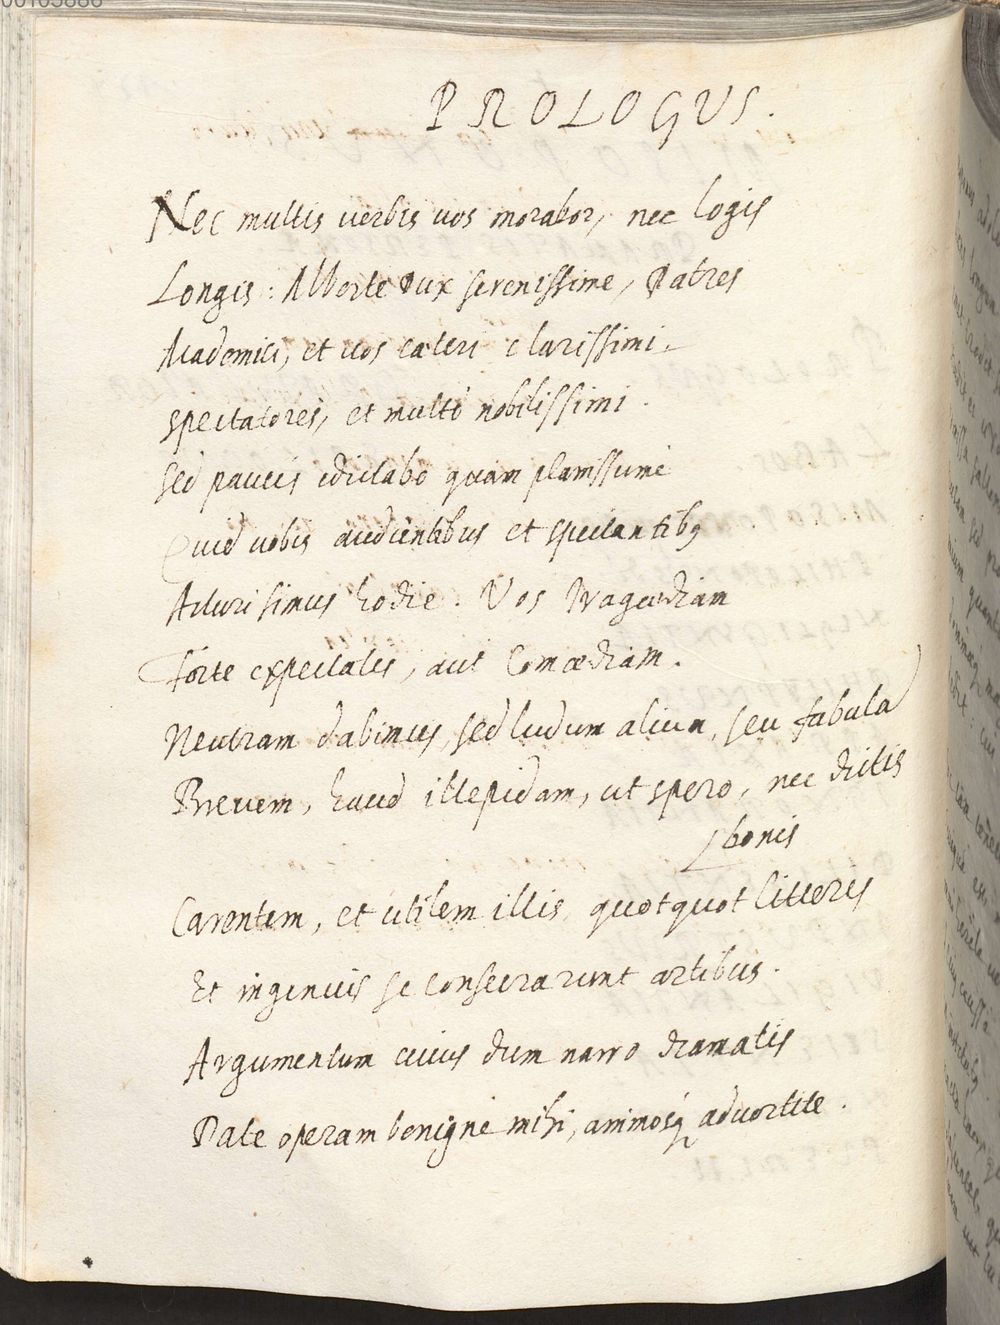 00105886
PROLOGUS.
Nec multis verbis vos morabor, nec logis
Longis: Alberte Dux serenissime, Patres
Academici, et vos cæteri clarissimi
spectatores, et multò nobilissimi.
Sed paucis edictabo quam planissimè
Quid vobis audientibus et spectantibꝰ
Acturi simus hodie. Vos Tragœdiam
Forte expectatis, aut Comœdiam.
Neutram dabimus, sed ludum alium, seu fabula
Brevem, haud illepidam, ut spero, nec dictis
bonis
Carentem, et utilem illis, quotquot litteris
Et ingenuis se consecrarunt artibus.
Argumentum cuius dum narro dramatis
Date operam benigne mihi, animosq advortite.